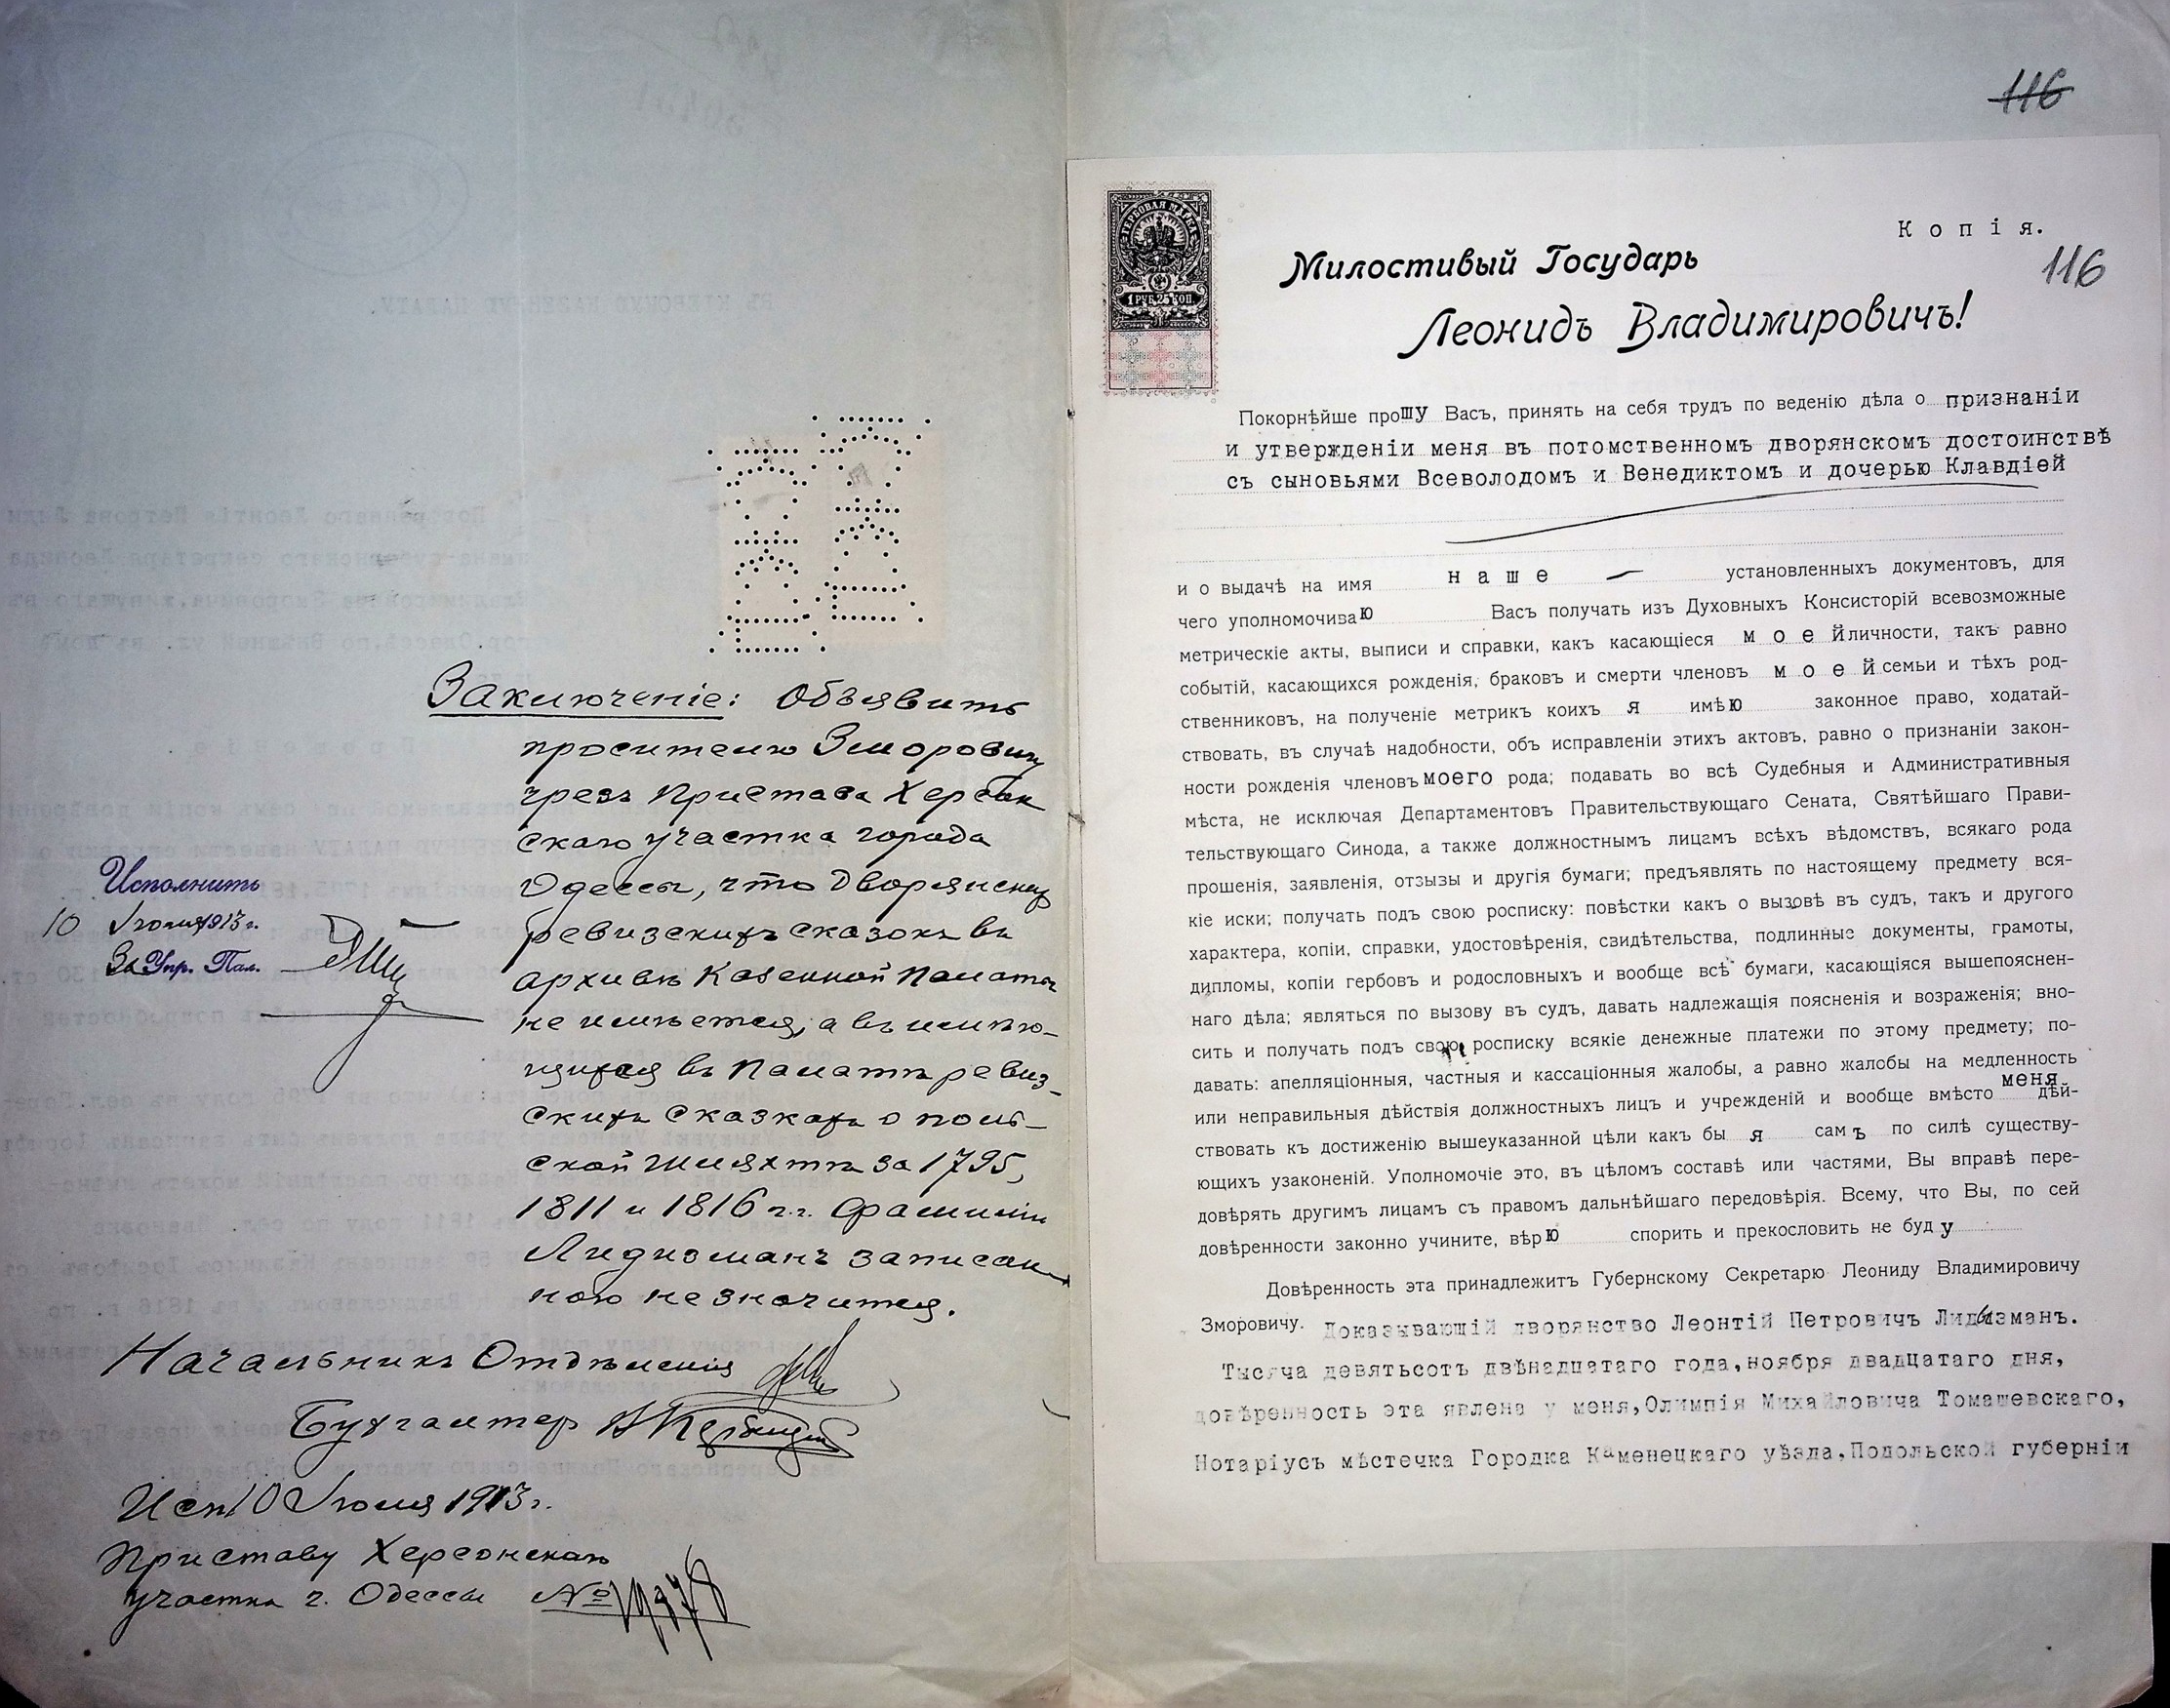 Заключеніе: Объявить
просителю Зморовичу
чрезъ Пристава Херсон
скаго участка города
Одессы, что дворянскихъ
ревизскихъ сказокъ въ
архивѣ Казенной Палаты
не имѣется, а въ имѣю-
щихся въ Палатѣ ревиз-
скихъ сказкахъ о поль-
ской шляхтѣ за 1795,
1811 и 1816 г.г. фамиліи
Лидизманъ записан
ною не значится.
Исполнить
10 Іюля 1913 г.
За Упр. Пал.
Начальникъ Отдѣленія
Бухгалтеръ
Исп 10 Іюля 1913 г.
Приставу Херсонскаго
участка г. Одессы №
116
Копія.
116
ГЕРБОВАЯ МАРКА
1 РУБ. 25 КОП.
Милостивый Государь
Леонидъ Владимировичъ!
Покорнѣйше прошу Васъ, принять на себя трудъ по веденію дѣла о признаніи
и утвержденіи меня въ потомственномъ дворянскомъ достоинствѣ
съ сыновьями Всеволодомъ и Венедиктомъ и дочерью Клавдіей
и о выдачѣ на имя наше — установленныхъ документовъ, для
чего уполномочиваю Васъ получать изъ Духовныхъ Консисторій всевозможные
метрическіе акты, выписи и справки, какъ касающіеся моей личности, такъ равно
событій, касающихся рожденія, браковъ и смерти членовъ моей семьи и тѣхъ род-
ственниковъ, на полученіе метрикъ коихъ я имѣю законное право, ходатай-
ствовать, въ случаѣ надобности, объ исправленіи этихъ актовъ, равно о признаніи закон-
ности рожденія членовъ моего рода; подавать во всѣ Судебныя и Административныя
мѣста, не исключая Департаментовъ Правительствующаго Сената, Святѣйшаго Прави-
тельствующаго Синода, а также должностнымъ лицамъ всѣхъ вѣдомствъ, всякаго рода
прошенія, заявленія, отзывы и другія бумаги; предъявлять по настоящему предмету вся-
кіе иски; получать подъ свою росписку: повѣстки какъ о вызовѣ въ судъ, такъ и другого
характера, копіи, справки, удостовѣренія, свидѣтельства, подлинные документы, грамоты,
дипломы, копіи гербовъ и родословныхъ и вообще всѣ бумаги, касающіяся вышепояснен-
наго дѣла; являться по вызову въ судъ, давать надлежащія поясненія и возраженія; вно-
сить и получать подъ свою росписку всякіе денежные платежи по этому предмету; по-
давать: апелляціонныя, частныя и кассаціонныя жалобы, а равно жалобы на медленность
или неправильныя дѣйствія должностныхъ лицъ и учрежденій и вообще вмѣсто меня дѣй-
ствовать къ достиженію вышеуказанной цѣли какъ бы я самъ по силѣ существу-
ющихъ узаконеній. Уполномочіе это, въ цѣломъ составѣ или частями, Вы вправѣ пере-
довѣрять другимъ лицамъ съ правомъ дальнѣйшаго передовѣрія. Всему, что Вы, по сей
довѣренности законно учините, вѣрю спорить и прекословить не буду
Довѣренность эта принадлежитъ Губернскому Секретарю Леониду Владимировичу
Зморовичу. Доказывающій дворянство Леонтій Петровичъ Лидызманъ.
Тысяча девятьсотъ двѣнадцатаго года, ноября двадцатаго дня,
довѣренность эта явлена у меня, Олимпія Михайловича Томашевскаго,
Нотаріусъ мѣстечка Городка Каменецкаго уѣзда, Подольской губерніи